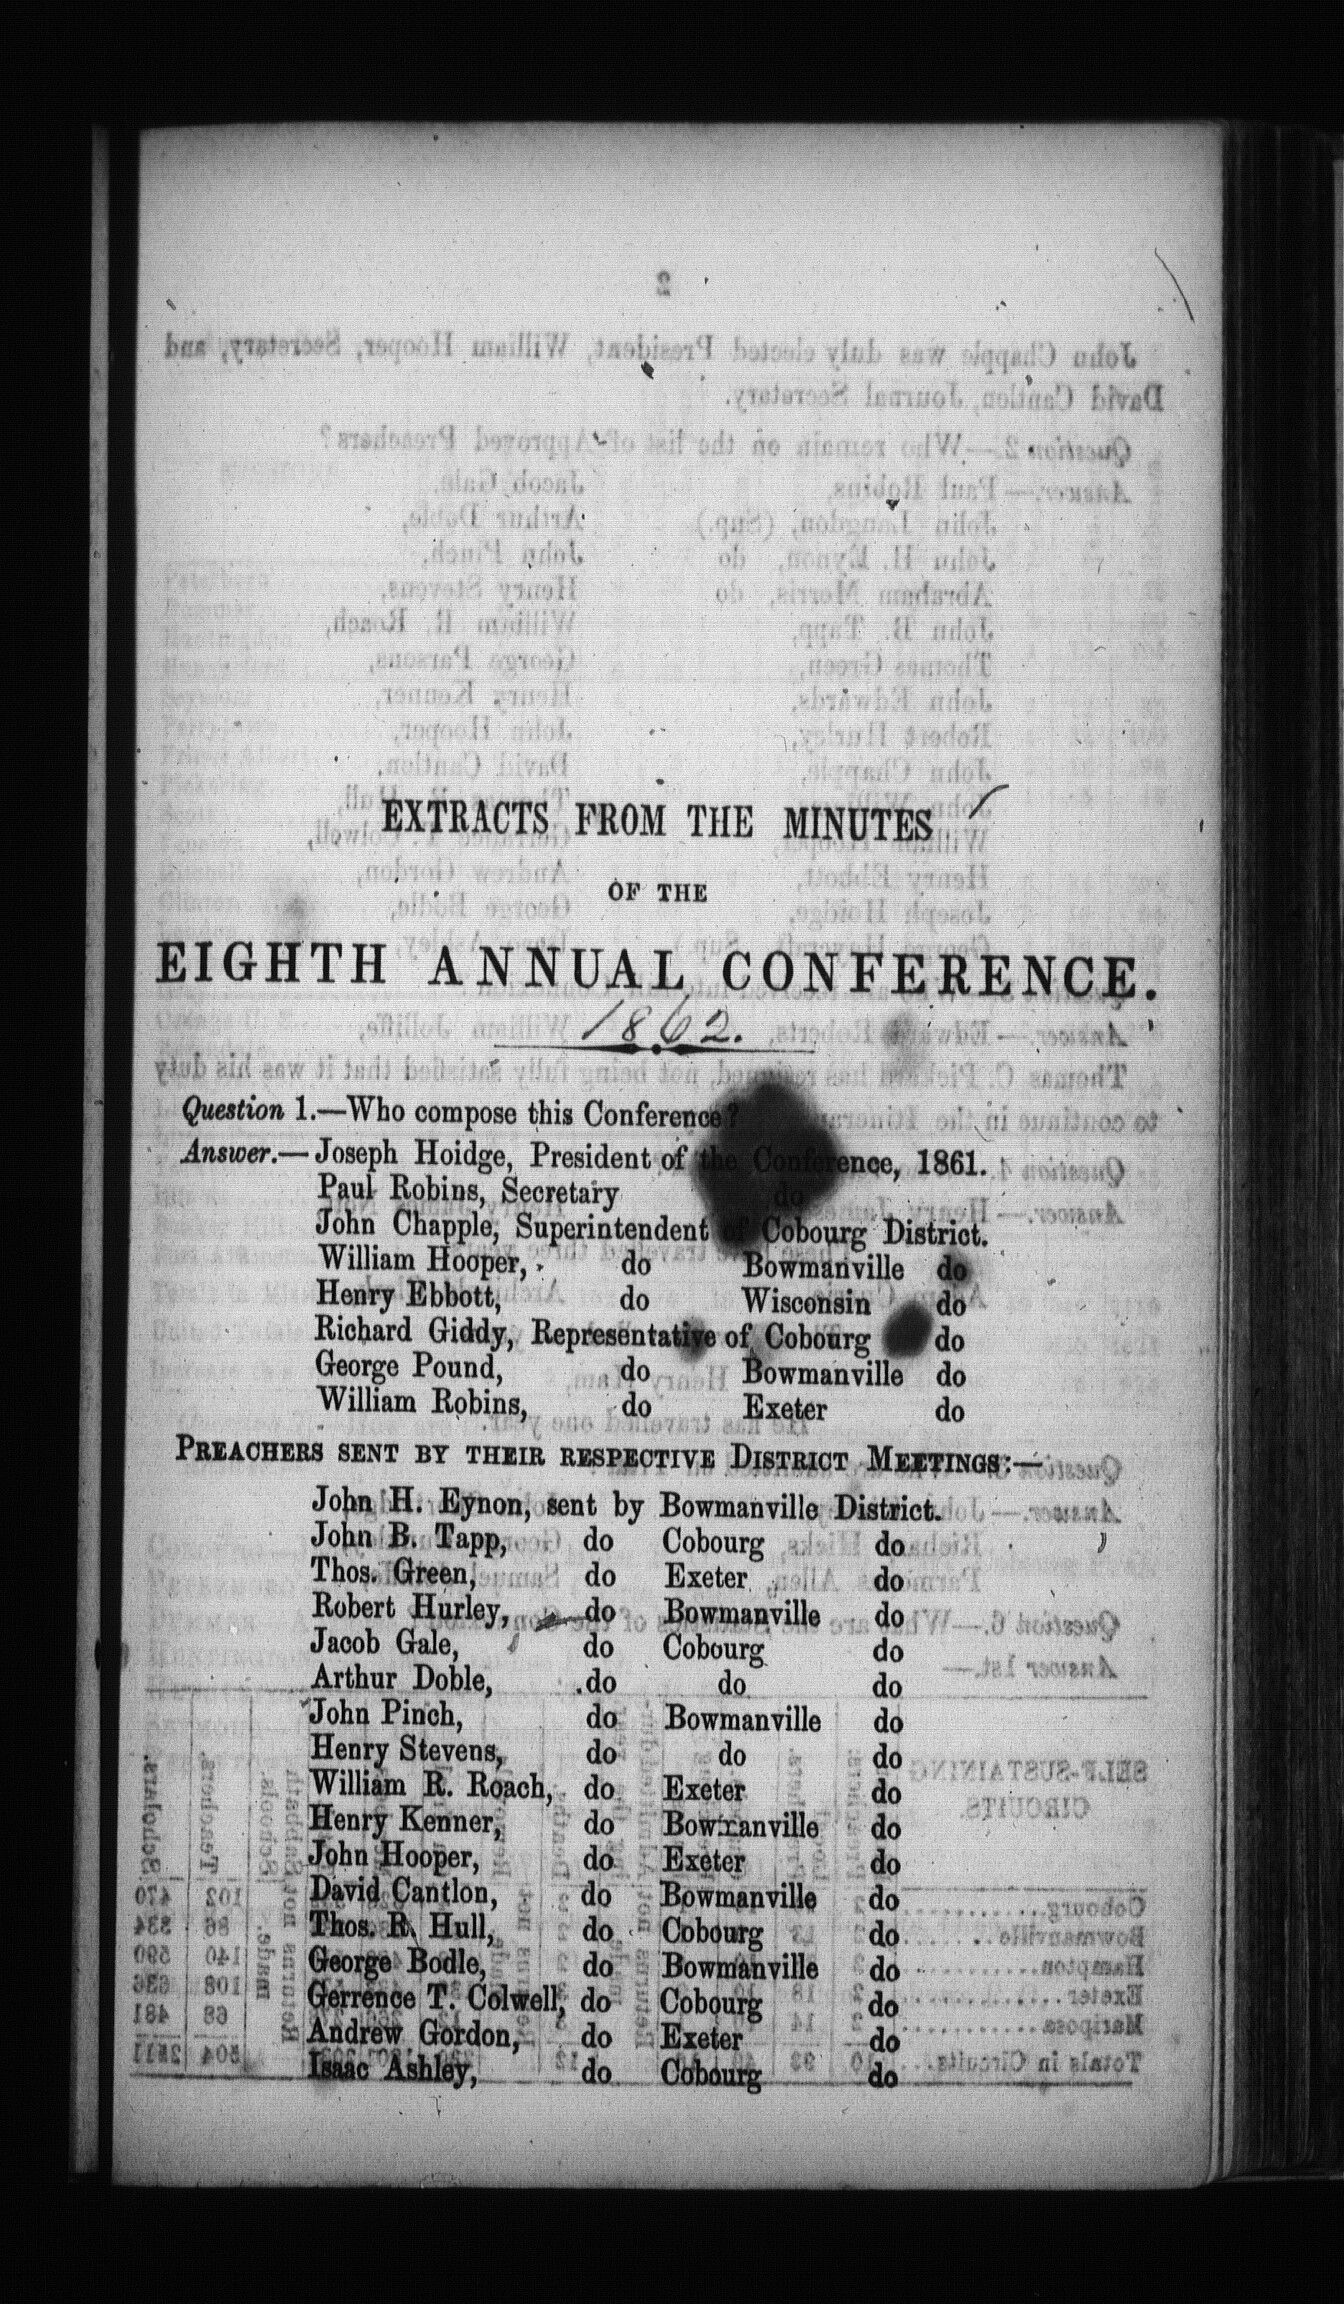 EXTRACTS FROM THE MINUTES
OF THE
EIGHTH ANNUAL CONFERENCE.
1862.
Question 1.—Who compose this Conference?
Answer.—Joseph Hoidge, President of the Conference, 1861.
Paul Robins, Secretary do
John Chapple, Superintendent of Cobourg District.
William Hooper, do Bowmanville do
Henry Ebbott, do Wisconsin do
Richard Giddy, Representative of Cobourg do
George Pound, do Bowmanville do
William Robins, do Exeter do
PREACHERS SENT BY THEIR RESPECTIVE DISTRICT MEETINGS:—
John H. Eynon, sent by Bowmanville District.
John B. Tapp, do Cobourg do
Thos. Green, do Exeter do
Robert Hurley, do Bowmanville do
Jacob Gale, do Cobourg do
Arthur Doble, do do do
John Pinch, do Bowmanville do
Henry Stevens, do do do
William R. Roach, do Exeter do
Henry Kenner, do Bowmanville do
John Hooper, do Exeter do
David Cantlon, do Bowmanville do
Thos. R. Hull, do Cobourg do
George Bodle, do Bowmanville do
Gerrence T. Colwell, do Cobourg do
Andrew Gordon, do Exeter do
Isaac Ashley, do Cobourg do